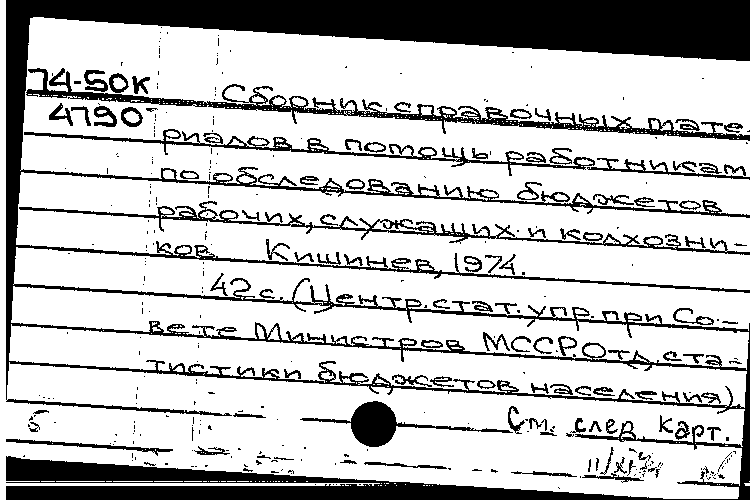 74-50к Сборник справочных мате-
4790 риалов в помощь работникам
по обследованию бюджетов
рабочих, служащих и колхозни-
ков Кишинев, 1974.
42 с. (Центр. стат. упр. при Со-
вете Министров МССР. Отд. ста-
тистики бюджетов населения).
См. след. карт.
б
11/XI 74